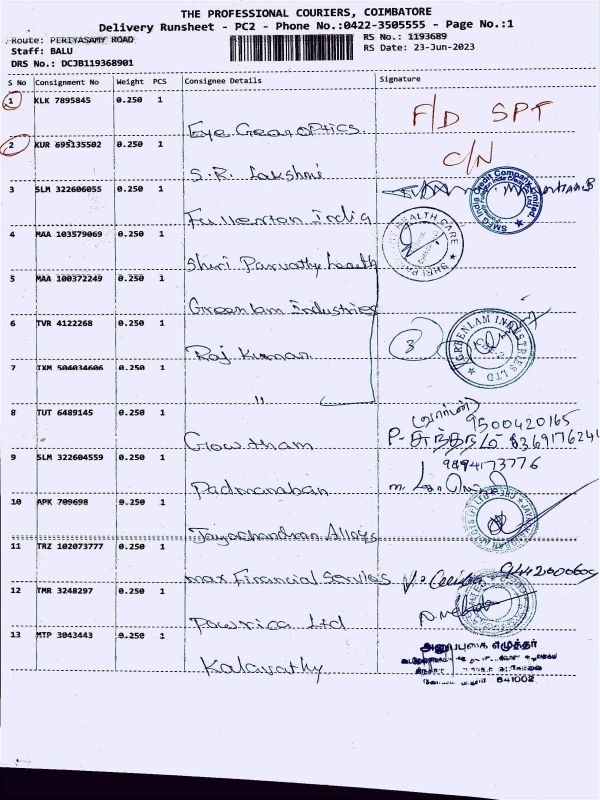 THE PROFESSIONAL COURIERS, COIMBATORE
Delivery Runsheet - PC2 - Phone No.:0422-3505555 - Page No.:1
Route: PERIYASAMY ROAD
RS No.: 1193689
Staff: BALU
RS Date: 23-Jun-2023
DRS No.: DCJB119368901
S No Consignment No Weight PCS Consignee Details Signature
1 KLK 7895845 0.250 1
Eye Gear optics
F/D SPT
2 KUR 695135502 0.250 1
S.R. Lakshmi
C/N
3 SLM 322606055 0.250 1
Fullerton India
SMFG India Credit Company Limited
4 MAA 103579069 0.250 1
Shri Parvathy health
HEALTH CARE
5 MAA 100372249 0.250 1
Greenlam Industries
6 TVR 4122268 0.250 1
Raj Kumar
3
GREENLAM INDUSTRIES LTD
7 TXM 504034606 0.250 1
"
8 TUT 6489145 0.250 1
Gowtham
9500420165
P. சுந்தரம்
9 SLM 322604559 0.250 1
Padmanaban
9894173776
10 APK 709698 0.250 1
Jayachandran Alloys
11 TRZ 102073777 0.250 1
max Financial Servies
12 TMR 3248297 0.250 1
Powrica Ltd
13 MTP 3043443 0.250 1
Kalavathy
அனுப்புகை எழுத்தர்
641002